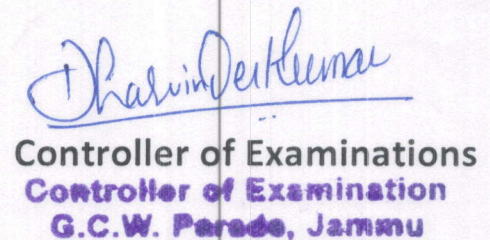 Dharvinder Kumar
Controller of Examinations
Controller of Examination
G.C.W. Parade, Jammu